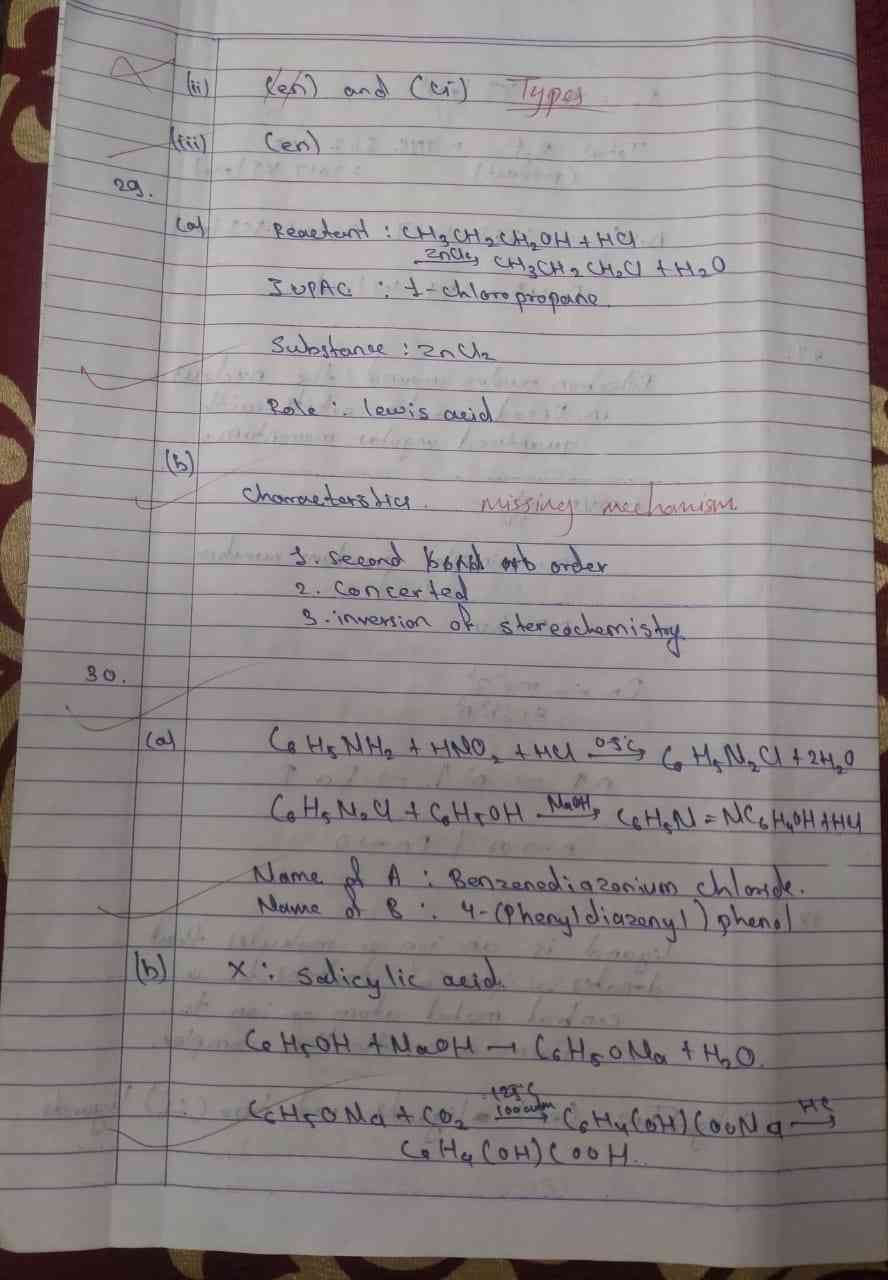 (ii) (en) and (Cl) Types
(iii) (en)
29.
(a) Reactant : CH3CH2CH2OH + HCl
ZnCl2 → CH3CH2CH2Cl + H2O
IUPAC : 1-chloropropane
Substance : ZnCl2
Role : lewis acid
(b)
Characteristics. Missing mechanism
1. second order
2. Concerted
3. inversion of stereochemistry
30.
(a) C6H5NH2 + HNO2 + HCl 0-5°C → C6H5N2Cl + 2H2O
C6H5N2Cl + C6H5OH NaOH → C6H5N = NC6H4OH + HCl
Name of A : Benzenediazonium chloride.
Name of B : 4-(Phenyldiazenyl) phenol
(b) X : Salicylic acid.
C6H5OH + NaOH → C6H5ONa + H2O.
C6H5ONa + CO2 125°C 100atm → C6H4(OH)COONa →
C6H4(OH)COOH.